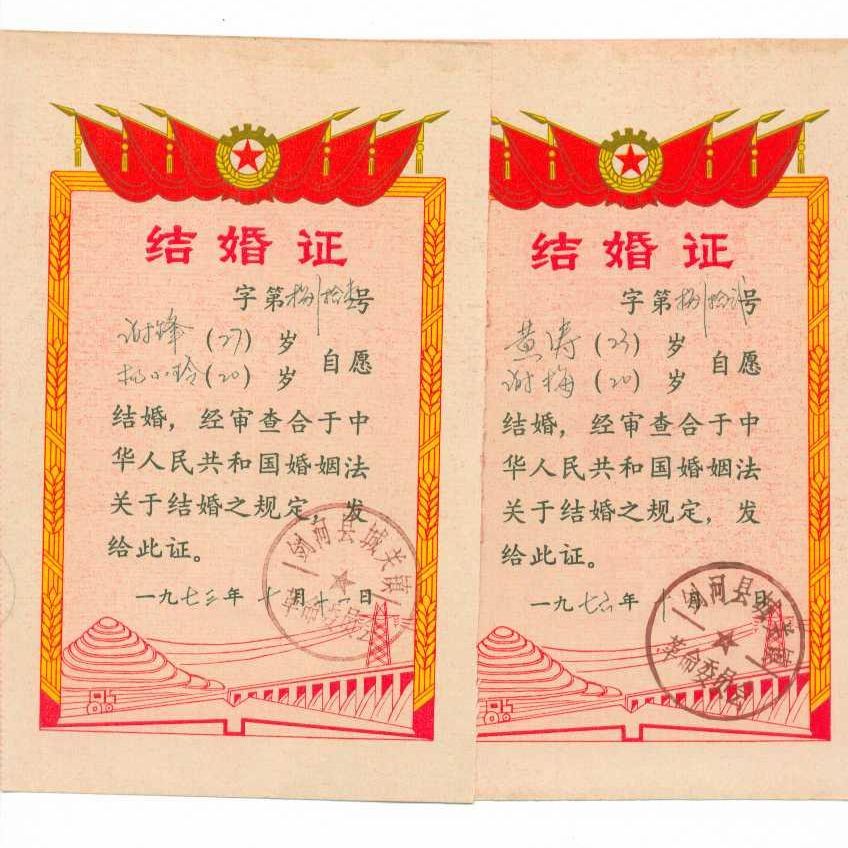 结婚证
字第捌拾壹号
谢锋(27)岁
杨小玲(20)岁
自愿
结婚，经审查合于中
华人民共和国婚姻法
关于结婚之规定，发
给此证。
一九七三年 月十 日
剑河县城关镇
革命委员会
结婚证
字第捌拾贰号
黄涛(23)岁
谢梅(20)岁
自愿
结婚，经审查合于中
华人民共和国婚姻法
关于结婚之规定，发
给此证。
一九七六年十月 日
剑河县城关镇
革命委员会